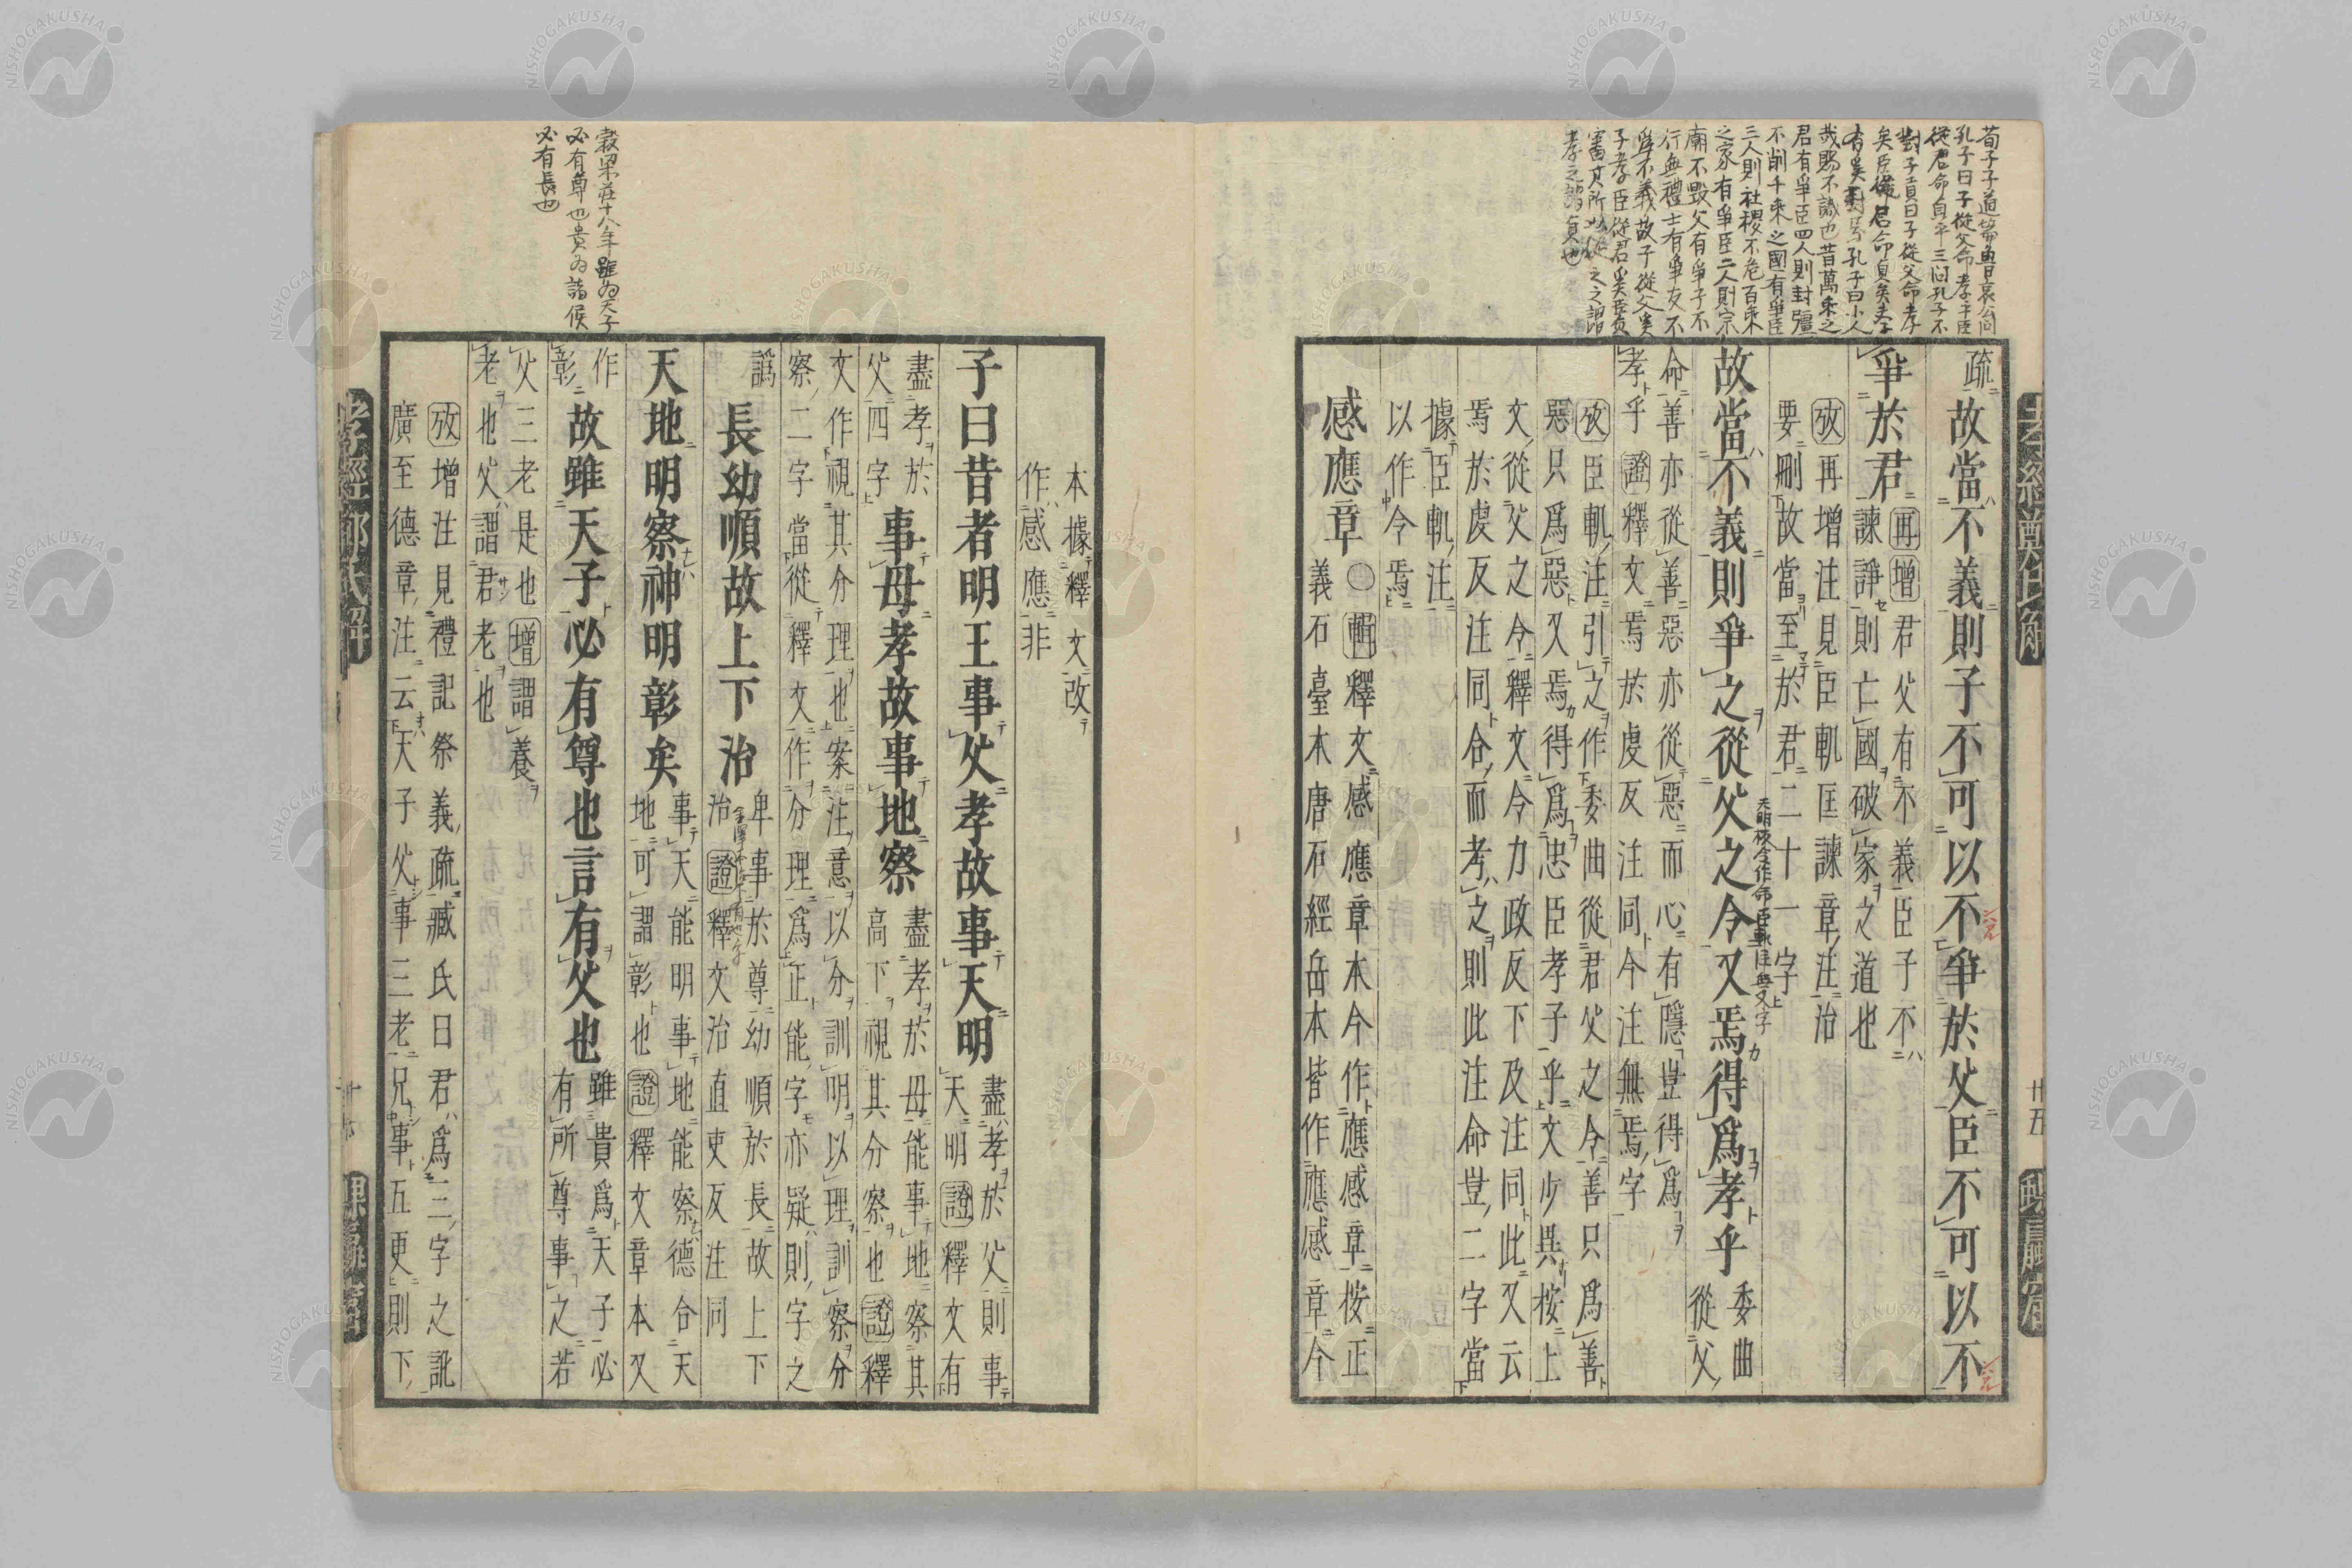 荀子子道篇魯哀公問
孔子曰子從父命孝乎臣
從君命貞乎三問孔子不
對子貢曰子從父命孝
矣臣從君命貞矣
有奚對焉孔子曰小人
哉賜不識也昔萬乘之
君有爭臣四人則封疆
不削千乘之國有爭臣
三人則社稷不危百乘
之家有爭臣二人則宗
廟不毀父有爭子不
行無禮士有爭友不
爲不義故子從父奚
子孝臣從君奚臣貞
審其所以從之之謂
孝之謂貞也
疏故當不義則子不可以不爭於父臣不可以不
爭於君
再增君父有不義臣子不
諫諍則亡國破家之道也
攷再增注見臣軌匡諫章注治
要刪故當至於君二十一字
故當不義則爭之從父之令又焉得爲孝乎
委曲
從父
命善亦從善惡亦從惡而心有隱豈得爲
孝乎證釋文焉於虔反注同今注無焉字
攷臣軌注引之作委曲從君父之令善只爲善
惡只爲惡又焉得爲忠臣孝子乎文少異按上
文從父之令釋文令力政反下及注同此又云
焉於虔反注同合而考之則此注命豈二字當
據臣軌注
以作令焉
感應章
○輯釋文感應章本今作應感章按正
義石臺本唐石經岳本皆作應感章今
老經鄭氏解
廿五
本據釋文改
作感應非
子曰昔者明王事父孝故事天明
盡孝於父則事
天明證釋文有
盡孝於
父四字
事母孝故事地察
盡孝於母能事地察其
高下視其分察也證釋
文作視其分理也案注意以分訓明以理訓察分
察二字當從釋文作分理爲正能字亦疑則字之
譌
長幼順故上下治
卑事於尊幼順於長故上下
治證釋文治直吏反注同
天地明察神明彰矣
事天能明事地能察德合天
地可謂彰也證釋文章本又
作
彰
故雖天子必有尊也言有父也
雖貴爲天子必
有所尊事之若
父三老是也增謂養
老也父謂君老也
攷增注見禮記祭義疏臧氏曰君爲三字之訛
廣至德章注云天子父事三老兄事五更則下
穀梁莊十八年雖为天子
必有尊也貴为諸侯
必有長也
孝經鄭氏解